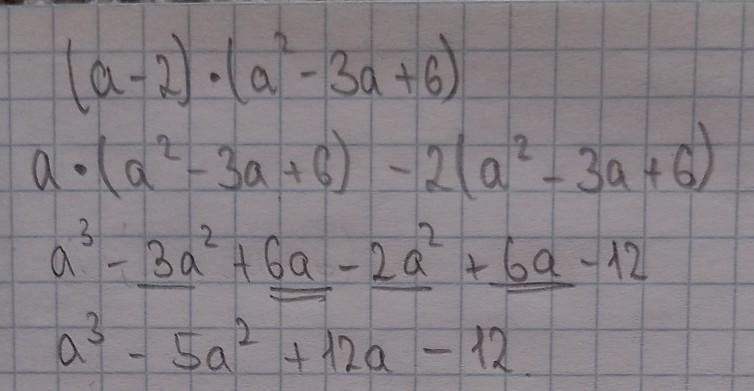 (a-2)·(a²-3a+6)
a·(a²-3a+6) -2(a²-3a+6)
a³-3a²+6a-2a²+6a-12
a³-5a²+12a-12.